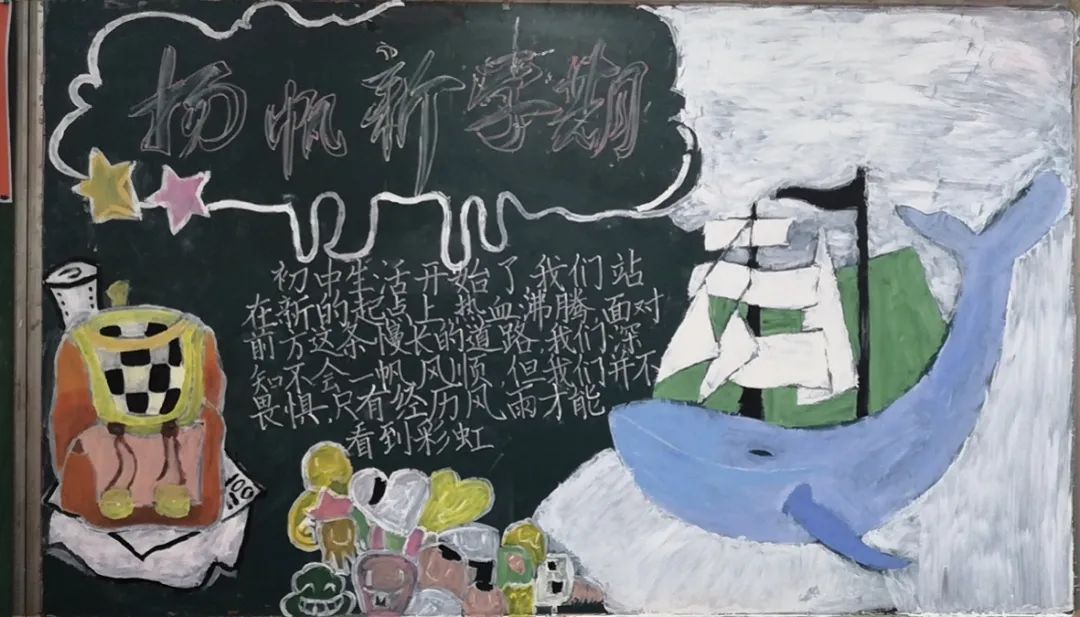 扬帆新学期
初中生活开始了,我们站
在新的起点上,热血沸腾,面对
前方这条慢长的道路,我们深
知不会一帆风顺,但我们并不
畏惧,只有经历风雨才能
看到彩虹
100